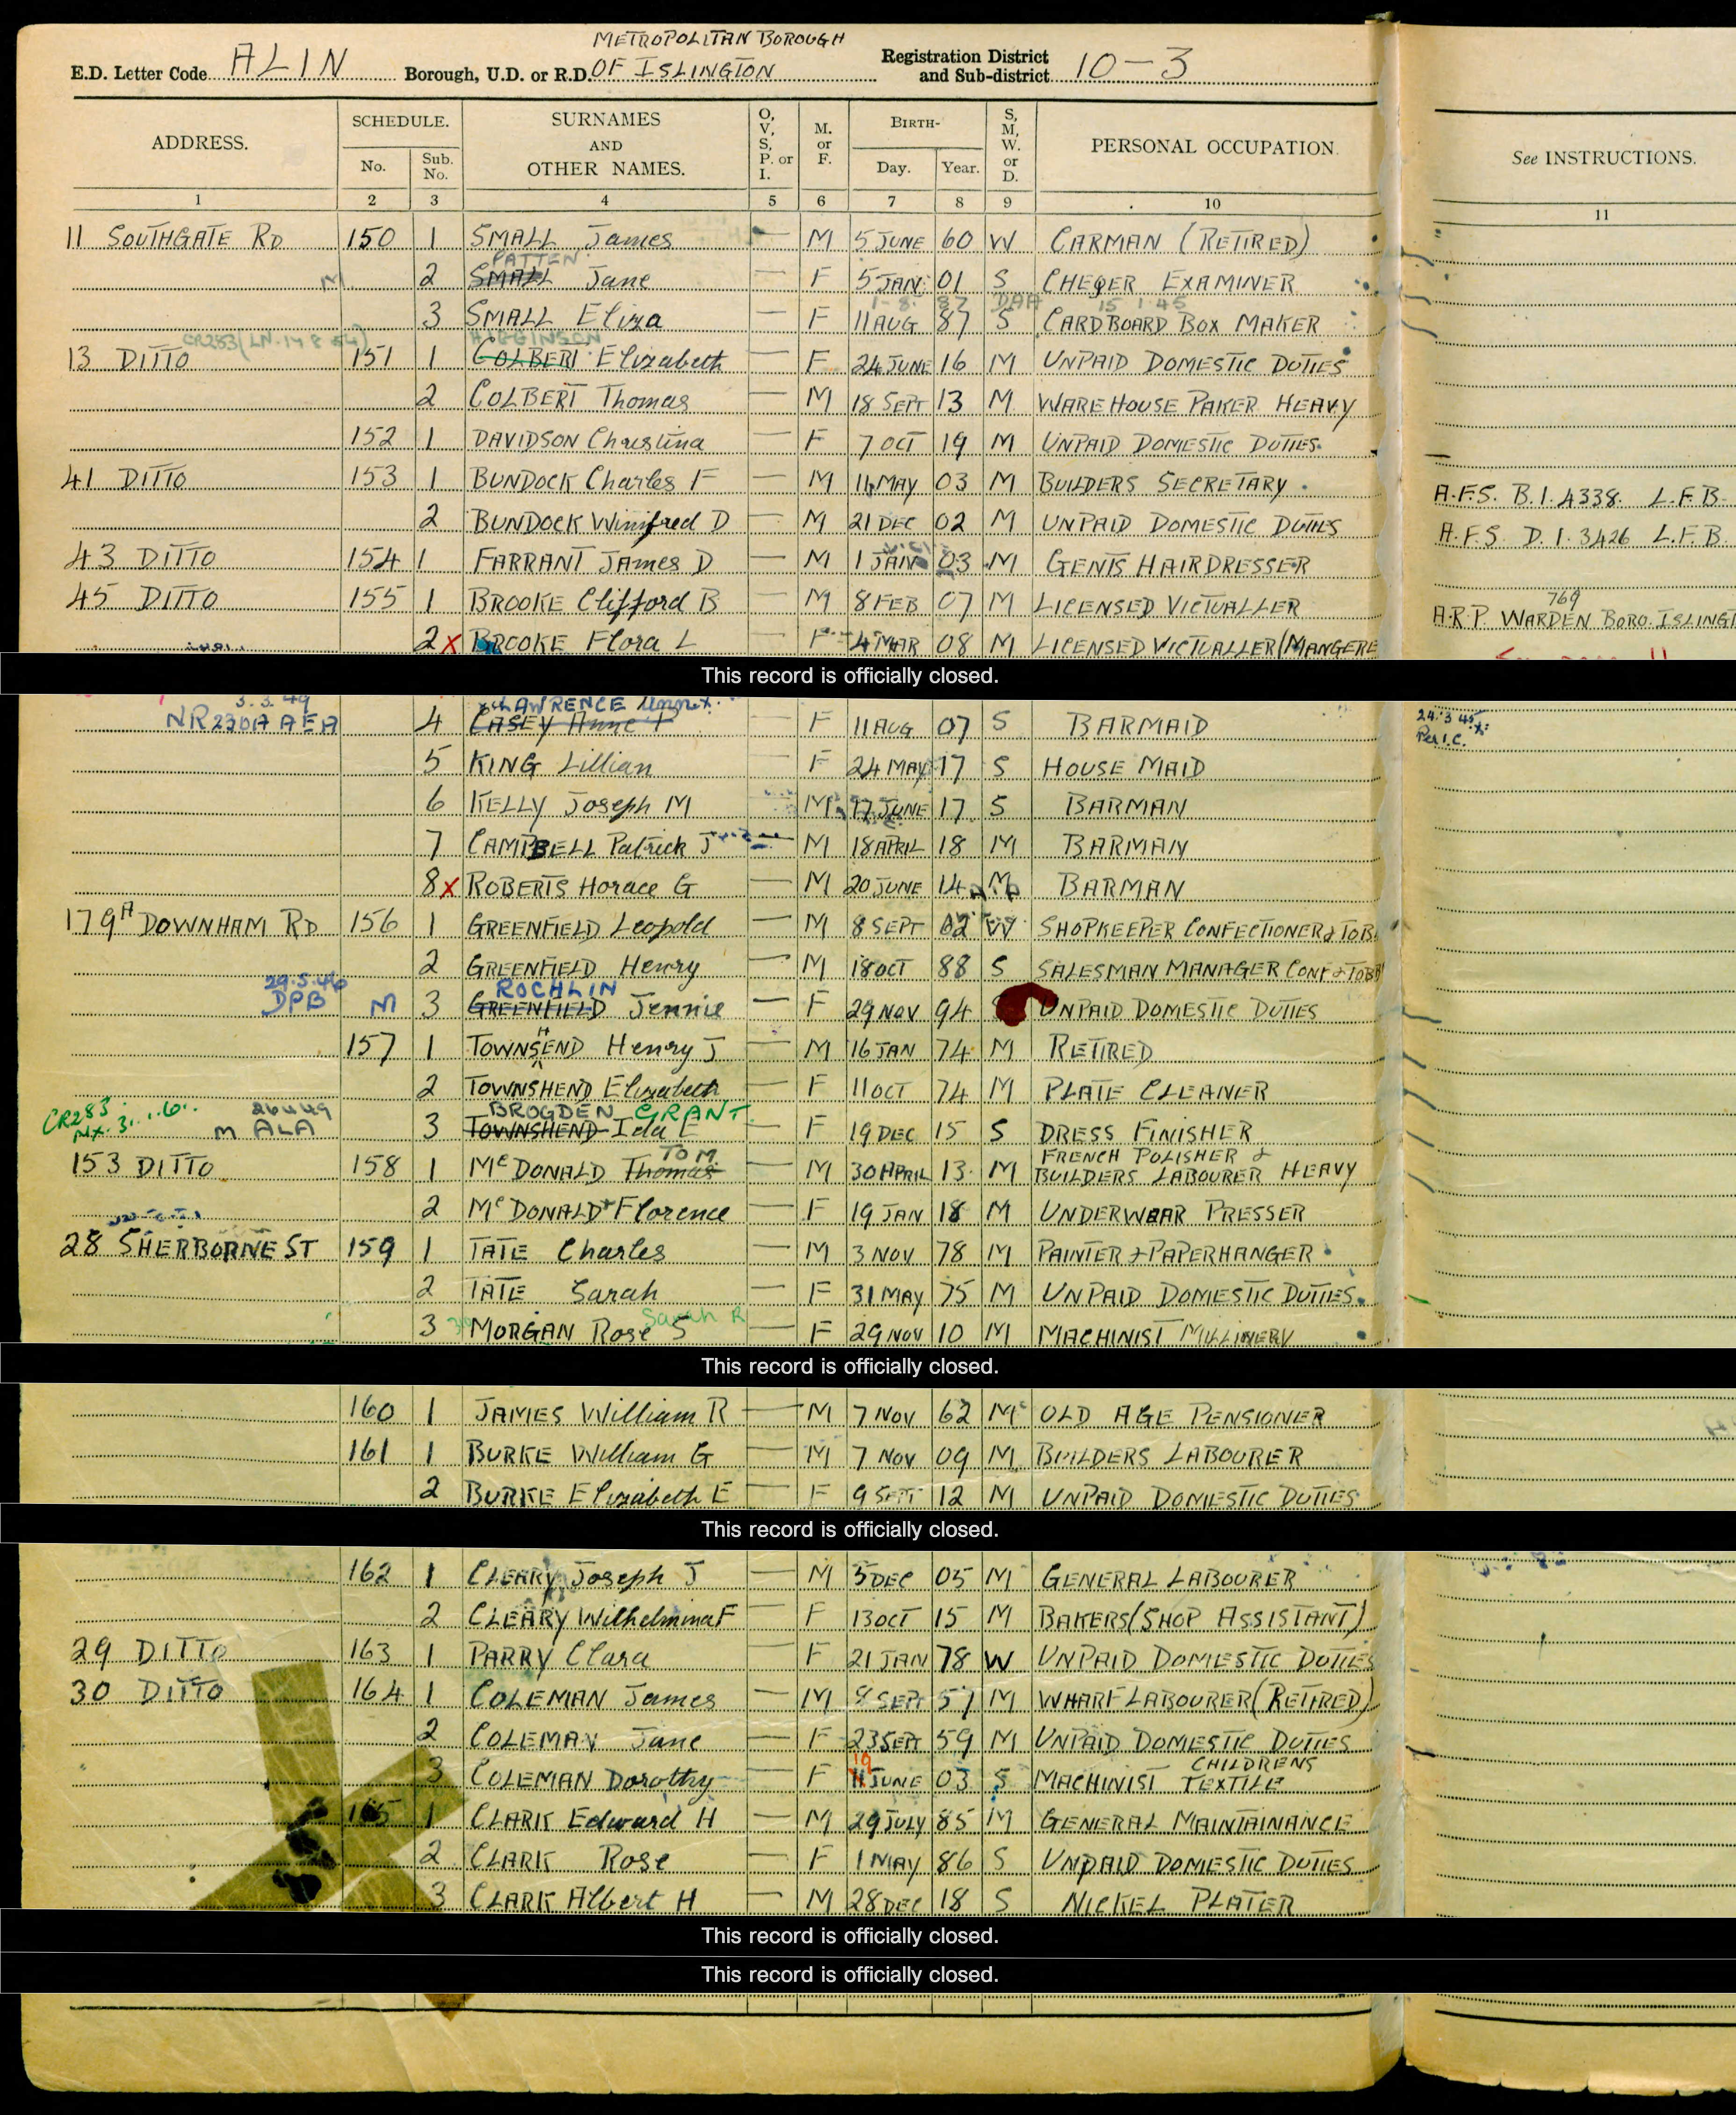 METROPOLITAN BOROUGH
E.D. Letter Code ALIN Borough, U.D. or R.D. OF ISLINGTON Registration District and Sub-district 10-3
ADDRESS. SCHEDULE. No. Sub. No. SURNAMES AND OTHER NAMES. O, V, S, P. or I. M. or F. BIRTH- Day. Year. S, M, W. or D. PERSONAL OCCUPATION. See INSTRUCTIONS.
1 2 3 4 5 6 7 8 9 10 11
11 SOUTHGATE RD 150 1 SMALL James — M 5 JUNE 60 W CARMAN (RETIRED)
PATTEN
M 2 SMALL Jane — F 5 JAN 01 S CHEQER EXAMINER
1-8- 87 DAA 15 1 45
3 SMALL Eliza — F 11 AUG 87 S CARDBOARD BOX MAKER
CR283
13 DITTO 151 1 COLBERT Elizabeth — F 24 JUNE 16 M UNPAID DOMESTIC DUTIES
2 COLBERT Thomas — M 18 SEPT 13 M WAREHOUSE PAKER HEAVY
152 1 DAVIDSON Christina — F 7 OCT 19 M UNPAID DOMESTIC DUTIES
41 DITTO 153 1 BUNDOCK Charles F — M 14 MAY 03 M BUILDERS SECRETARY A.F.S. B.1.4338. L.F.B.
2 BUNDOCK Winifred D — M 21 DEC 02 M UNPAID DOMESTIC DUTIES A.F.S. D.1.3426 L.F.B.
43 DITTO 154 1 FARRANT James D — M 1 JAN 03 M GENTS HAIRDRESSER
45 DITTO 155 1 BROOKE Clifford B — M 8 FEB 07 M LICENSED VICTUALLER A.R.P. WARDEN 769 BORO. ISLINGT
2 X BROOKE Flora L — F 4 MAR 08 M LICENSED VICTUALLER (MANGERE
This record is officially closed.
3.3.49 LAWRENCE
NR230A AEA 4 CASEY Anne T — F 11 AUG 07 S BARMAID 24.3.45 Per I.C.
5 KING Lillian — F 24 MAY 17 S HOUSE MAID
6 KELLY Joseph M — M 17 JUNE 17 S BARMAN
7 CAMPBELL Patrick J — M 18 APRIL 18 M BARMAN
8 X ROBERTS Horace G — M 20 JUNE 14 M BARMAN
179A DOWNHAM RD 156 1 GREENFIELD Leopold — M 8 SEPT 02 W SHOPKEEPER CONFECTIONER & TOB
2 GREENFIELD Henry — M 18 OCT 88 S SALESMAN MANAGER CONF & TOBB
29.5.46 ROCHLIN
DPB M 3 GREENFIELD Jennie — F 29 NOV 94 UNPAID DOMESTIC DUTIES
157 1 TOWNSHEND Henry J — M 16 JAN 74 M RETIRED
2 TOWNSHEND Elizabeth — F 11 OCT 74 M PLATE CLEANER
CR283 26449 BROGDEN GRANT
M ALA 3 TOWNSHEND Ida E — F 19 DEC 15 S DRESS FINISHER
TOM FRENCH POLISHER &
153 DITTO 158 1 McDONALD Thomas — M 30 APRIL 13 M BUILDERS LABOURER HEAVY
2 McDONALD Florence — F 19 JAN 18 M UNDERWEAR PRESSER
28 SHERBORNE ST 159 1 TATE Charles — M 3 NOV 78 M PAINTER & PAPERHANGER
2 TATE Sarah — F 31 MAY 75 M UNPAID DOMESTIC DUTIES
Sarah R
3 MORGAN Rose S — F 29 NOV 10 M MACHINIST MILLINERY
This record is officially closed.
160 1 JAMES William R — M 7 NOV 62 M OLD AGE PENSIONER
161 1 BURKE William G — M 7 NOV 09 M BUILDERS LABOURER
2 BURKE Elizabeth E — F 9 SEPT 12 M UNPAID DOMESTIC DUTIES
This record is officially closed.
162 1 CLEARY Joseph J — M 5 DEC 05 M GENERAL LABOURER
2 CLEARY Wilhelmina F — F 13 OCT 15 M BAKERS (SHOP ASSISTANT)
29 DITTO 163 1 PARRY Clara — F 21 JAN 78 W UNPAID DOMESTIC DUTIES
30 DITTO 164 1 COLEMAN James — M 8 SEPT 57 M WHARF LABOURER (RETIRED)
2 COLEMAN Jane — F 23 SEPT 59 M UNPAID DOMESTIC DUTIES
19 CHILDRENS
3 COLEMAN Dorothy — F 11 JUNE 03 S MACHINIST TEXTILE
165 1 CLARK Edward H — M 29 JULY 85 M GENERAL MAINTAINANCE
2 CLARK Rose — F 1 MAY 86 S UNPAID DOMESTIC DUTIES
3 CLARK Albert H — M 28 DEC 18 S NICKEL PLATER
This record is officially closed.
This record is officially closed.